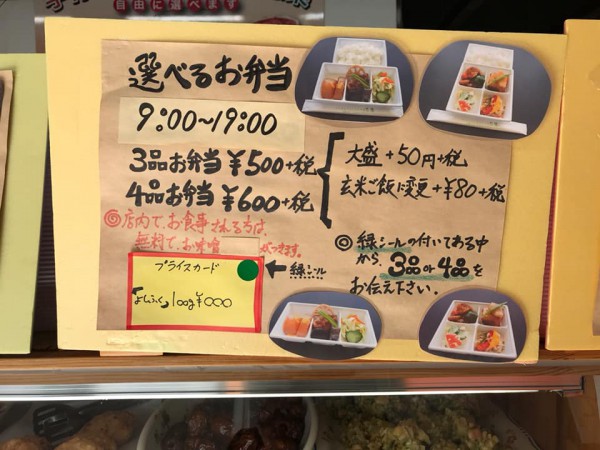 自由に選べます
選べるお弁当
9:00~19:00
3品お弁当¥500+税
4品お弁当¥600+税
大盛+50円+税
玄米ご飯に変更+¥80+税
◎店内で、お食事される方は、
無料で、お味噌 がつきます。
プライスカード
100g¥000
←緑シール
◎緑シールの付いてある中
から、3品or4品を
お伝え下さい。